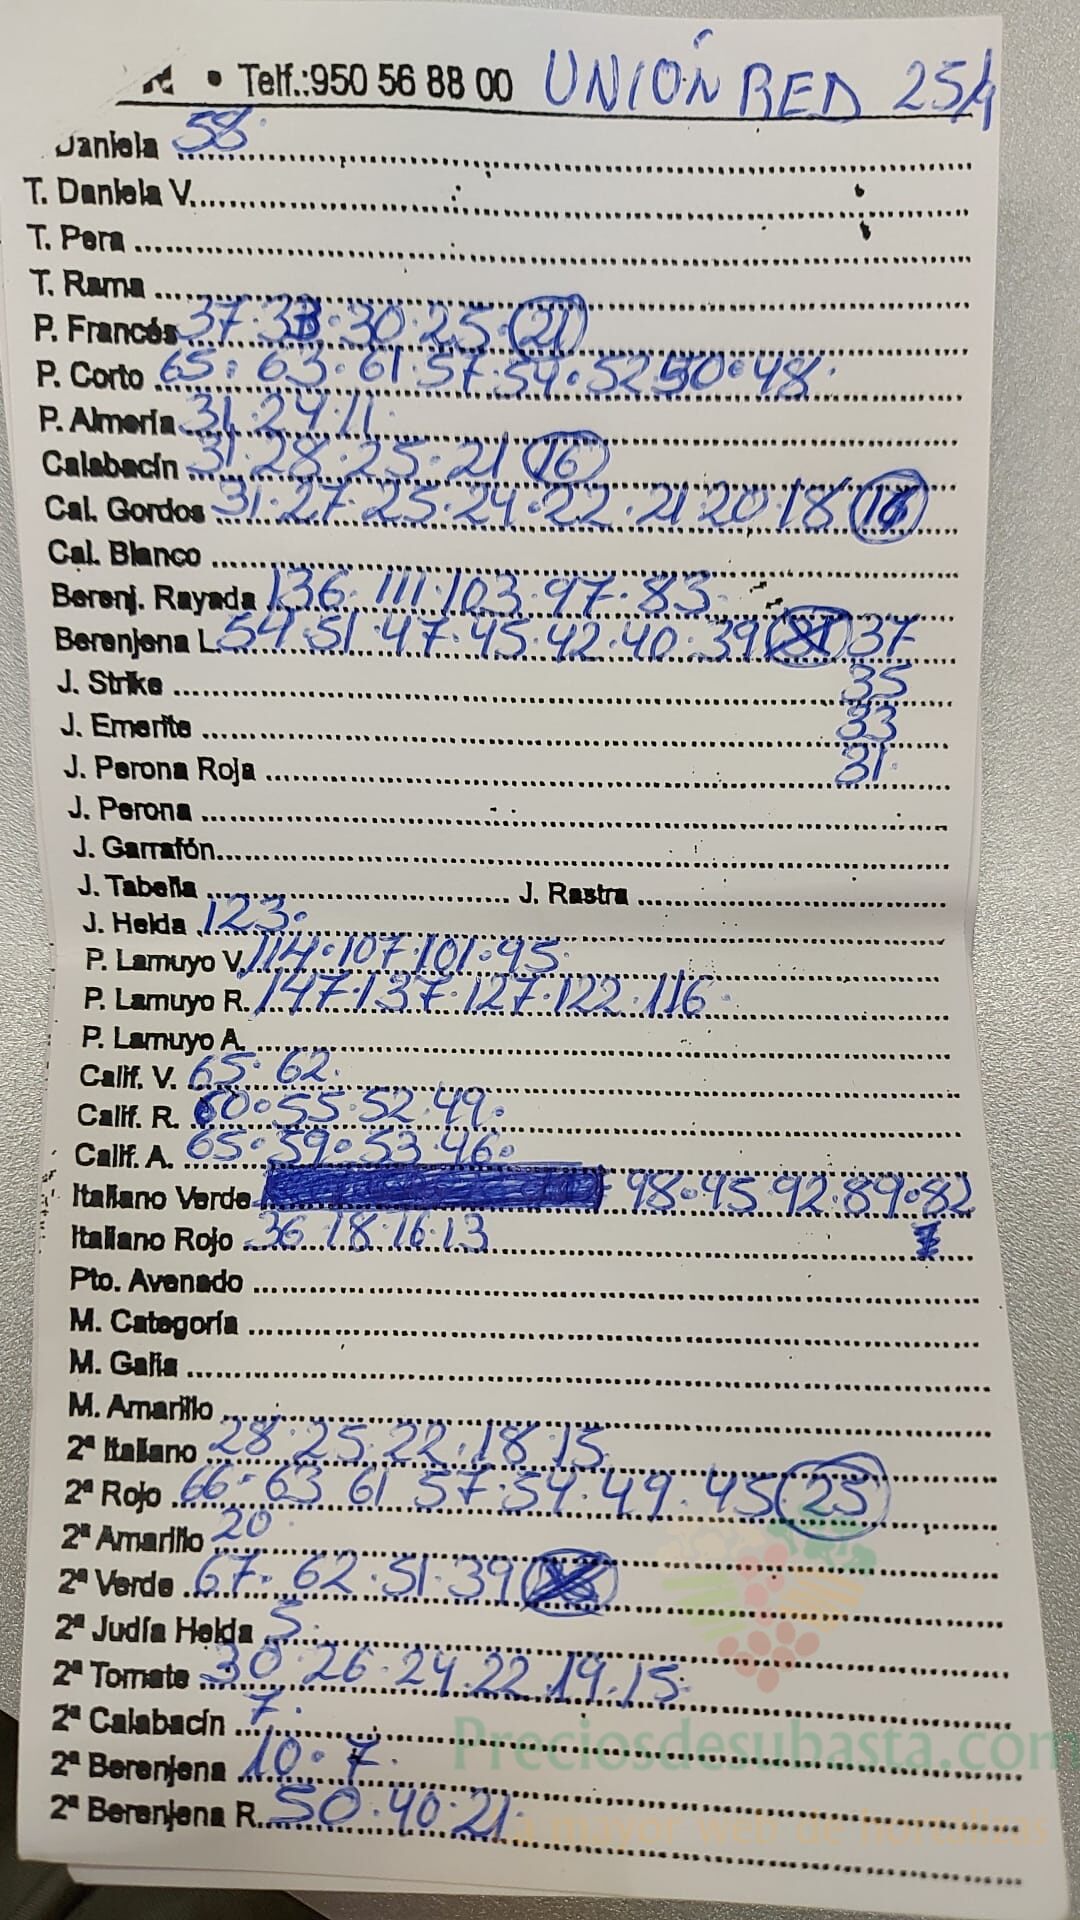 • Telf.:950 56 88 00 UNIÓN RED 25/4
Daniela 58.
T. Daniela V.
T. Pera
T. Rama
P. Francés 37.33.30.25.21
P. Corto 65.63.61.57.54.52 50.48.
P. Almería 31.24.11.
Calabacín 31.28.25.21 16
Cal. Gordos 31.27.25.24.22.21 20.18 16
Cal. Blanco
Berenj. Rayada 136.111.103.97.83.
Berenjena L. 54.51.47.45.42.40.39 37
J. Strike 35
J. Emerite 33
J. Perona Roja 31.
J. Perona
J. Garrafón
J. Tabella J. Rastra
J. Helda 123.
P. Lamuyo V. 114.107.101.95.
P. Lamuyo R. 147.137.127.122.116.
P. Lamuyo A.
Calif. V. 65.62.
Calif. R. 60.55.52.49.
Calif. A. 65.59.53.46.
Italiano Verde 98.95.92.89.82
Italiano Rojo 36.18.16.13
Pto. Avenado
M. Categoría
M. Galia
M. Amarillo
2ª Italiano 28.25.22.18.15
2ª Rojo 66.63 61 57.54.49.45 25
2ª Amarillo 20.
2ª Verde 67.62.51.39
2ª Judía Helda 5.
2ª Tomate 30.26.24.22.19.15.
2ª Calabacín 7.
2ª Berenjena 10.7.
2ª Berenjena R. 50.40.21.
Preciosdesubasta.com
la mayor web de hortalizas